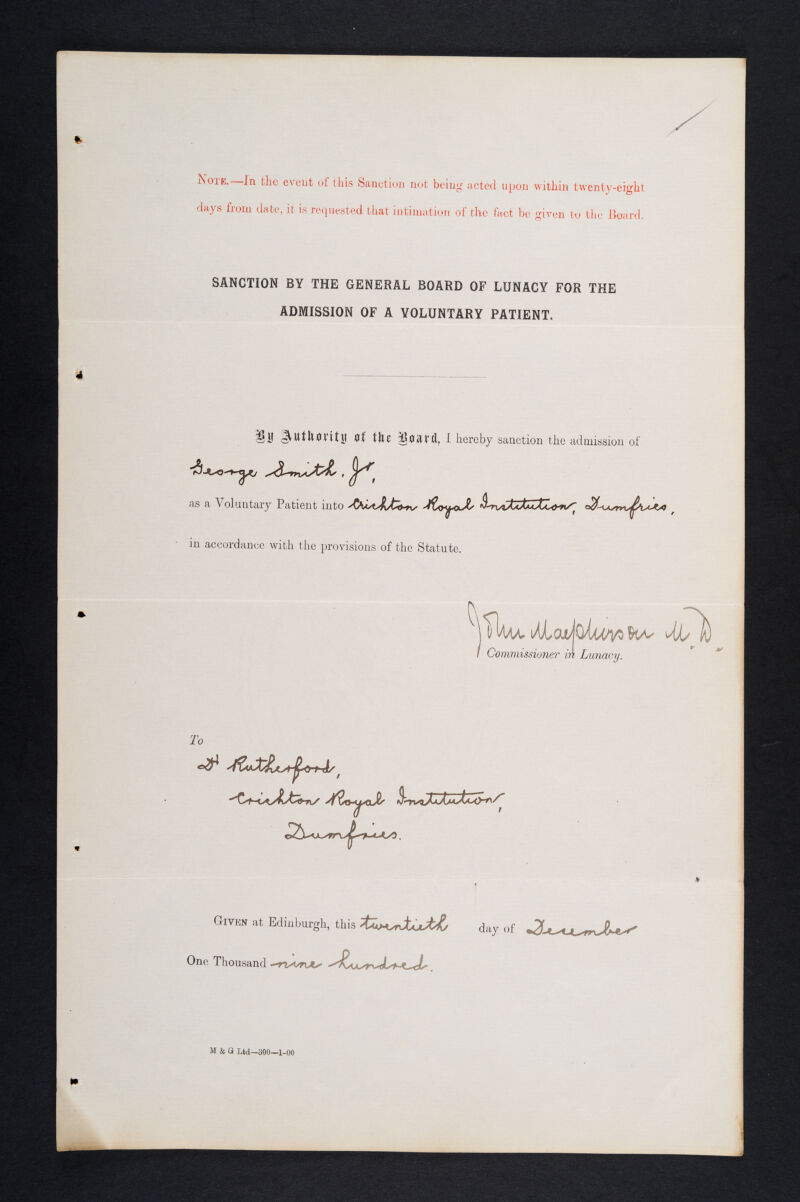 NOTE.—In the event of this Sanction not being acted upon within twenty-eight
days from date, it is requested that intimation of the fact be given to the Board.
SANCTION BY THE GENERAL BOARD OF LUNACY FOR THE
ADMISSION OF A VOLUNTARY PATIENT.
By Authority of the Board, I hereby sanction the admission of
George Smith. Jr,
as a Voluntary Patient into Crichton Royal Institution, Dumfries,
in accordance with the provisions of the Statute.
John Macpherson M.D.
Commissioner in Lunacy.
To
Dr Rutherford,
Crichton Royal Institution,
Dumfries.
GIVEN at Edinburgh, this twentieth day of December
One Thousand nine hundred.
M & G Ltd—300—1-00